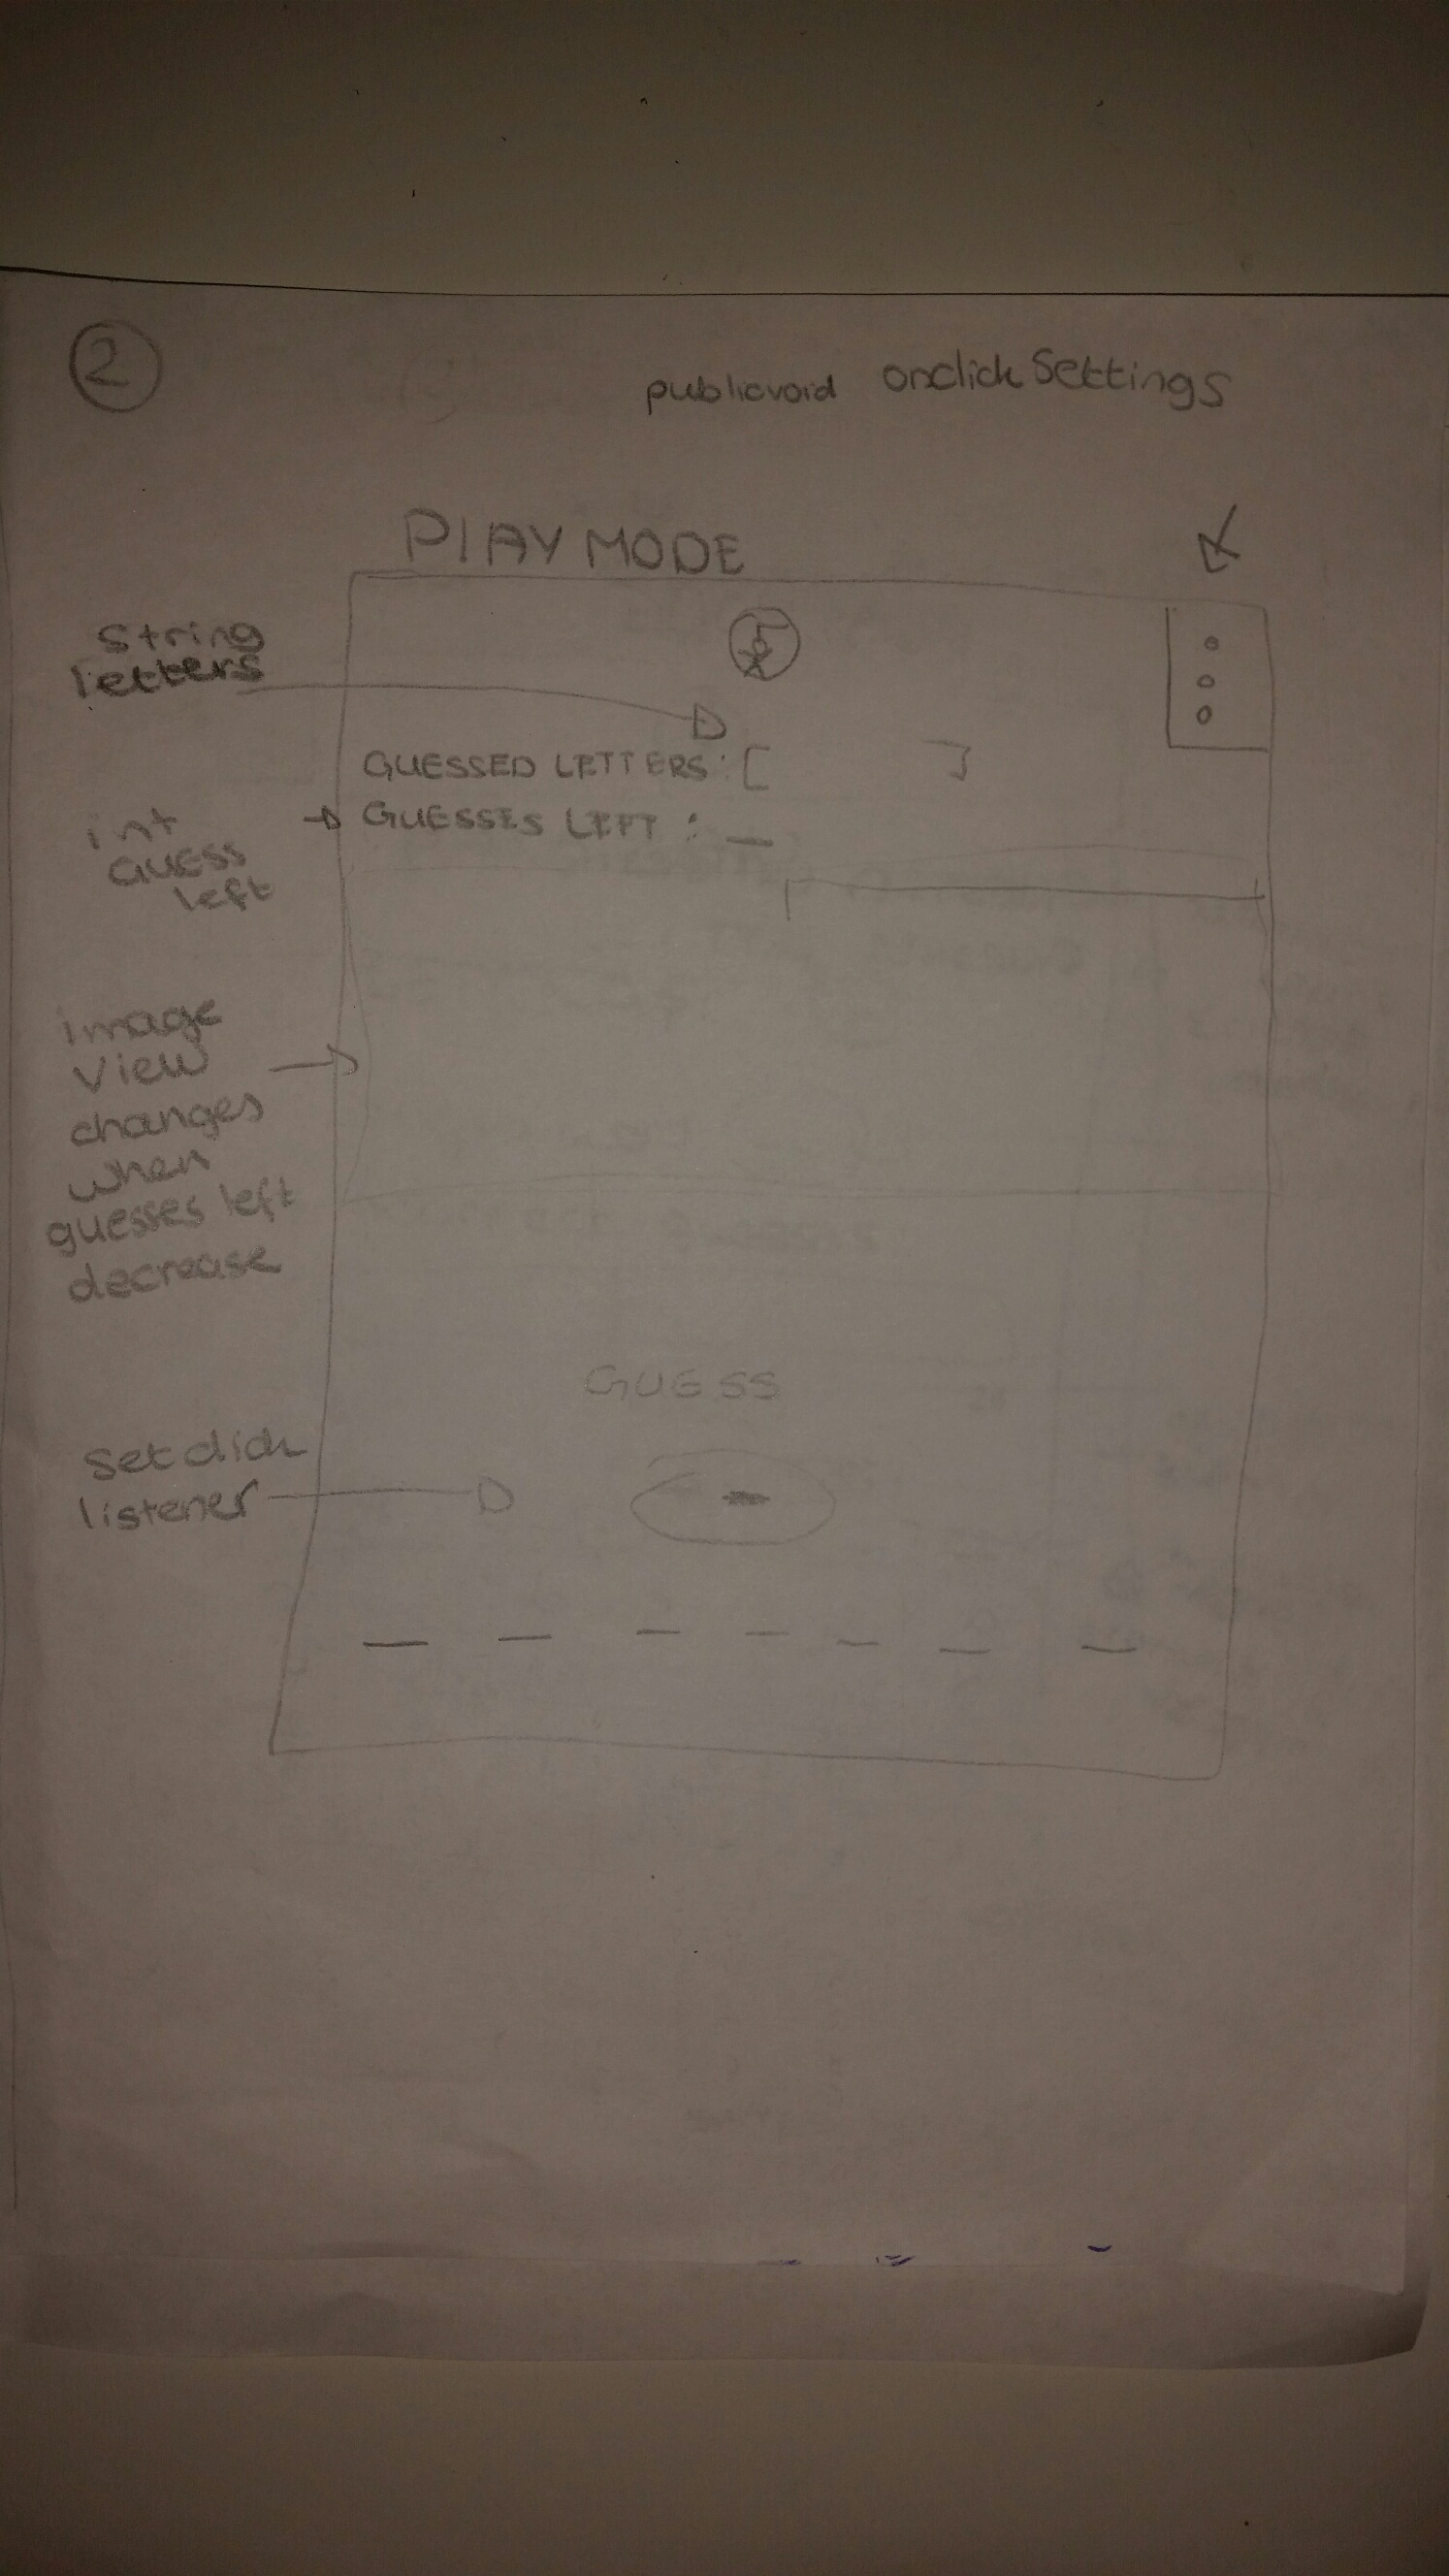 2
publicvoid onclick Settings
PLAY MODE
String
letters
GUESSED LETTERS: [ ]
int
Guess
left
GUESSES LEFT : _
image
View
changes
when
guesses left
decrease
GUESS
Set click
listener
_ _ _ _ _ _ _